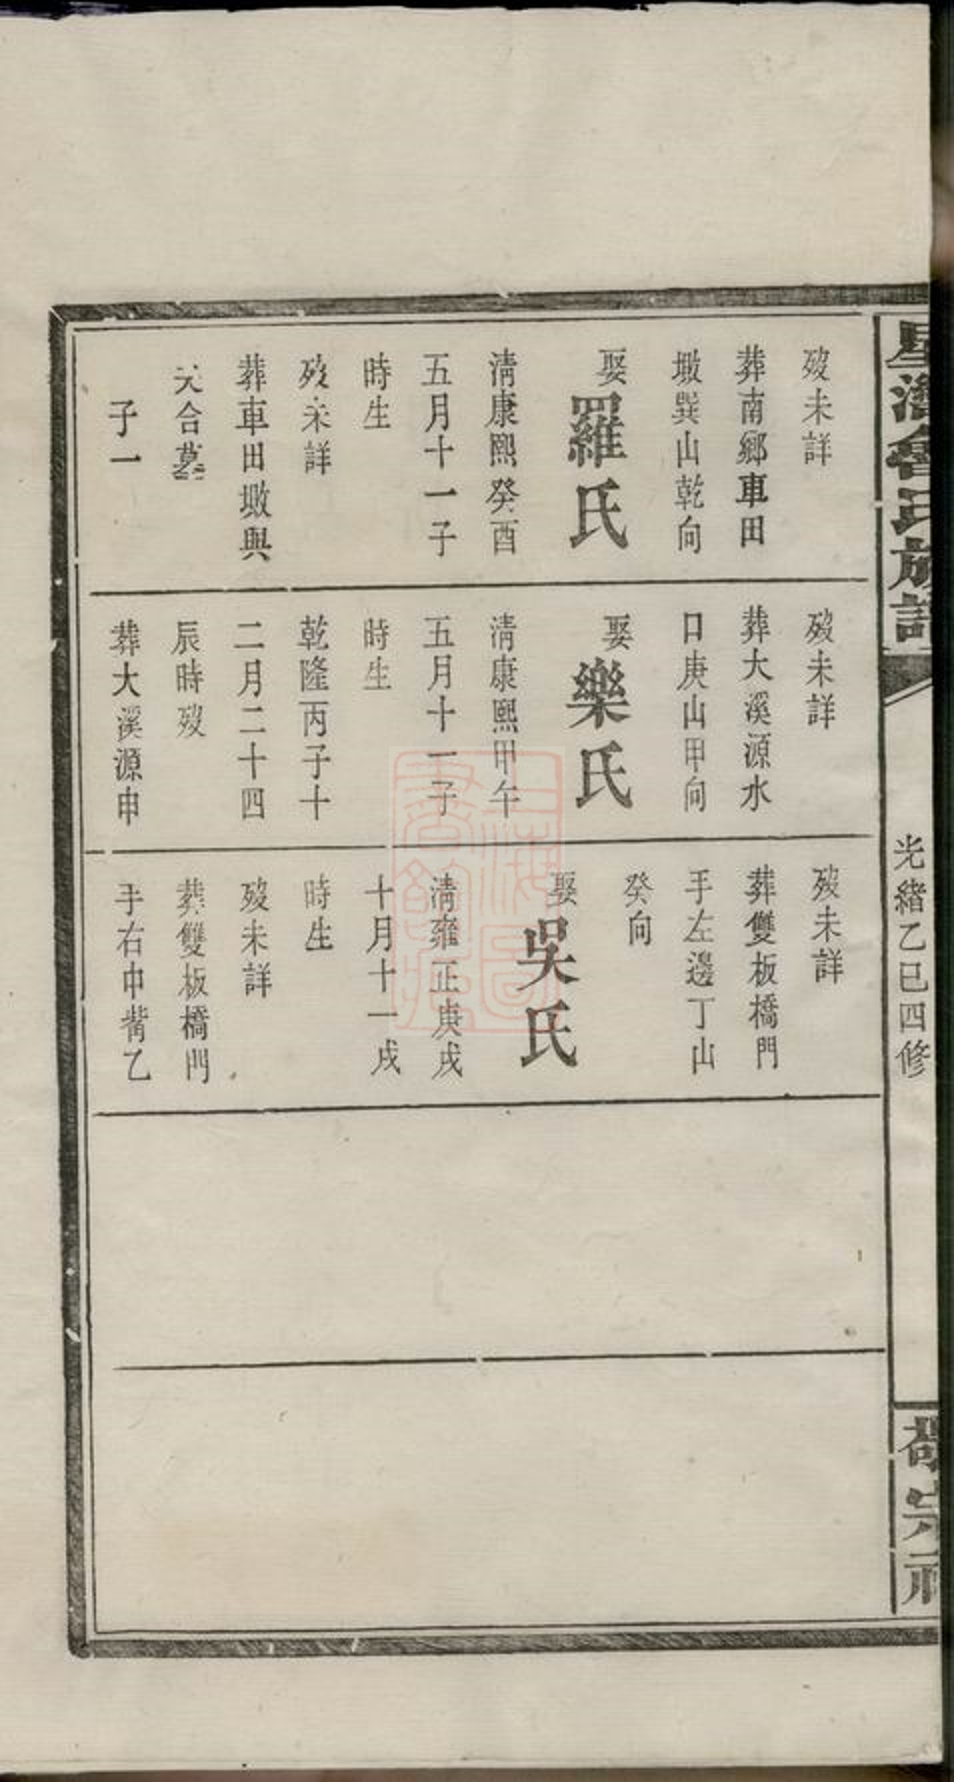 族譜
光緒乙巳四修
歿未詳
葬南鄉車田
墩巽山乾向
娶羅氏
清康熙癸酉
五月十一子
時生
歿未詳
葬車田墩與
夫合墓
子一
歿未詳
葬大溪源水
口庚山甲向
娶樂氏
清康熙甲午
五月十一子
時生
乾隆丙子十
二月二十四
辰時歿
葬大溪源申
歿未詳
葬雙板橋門
手左邊丁山
癸向
娶吳氏
清雍正庚戌
十月十一戌
時生
歿未詳
葬雙板橋門
手右巾觜乙
上海圖書館藏